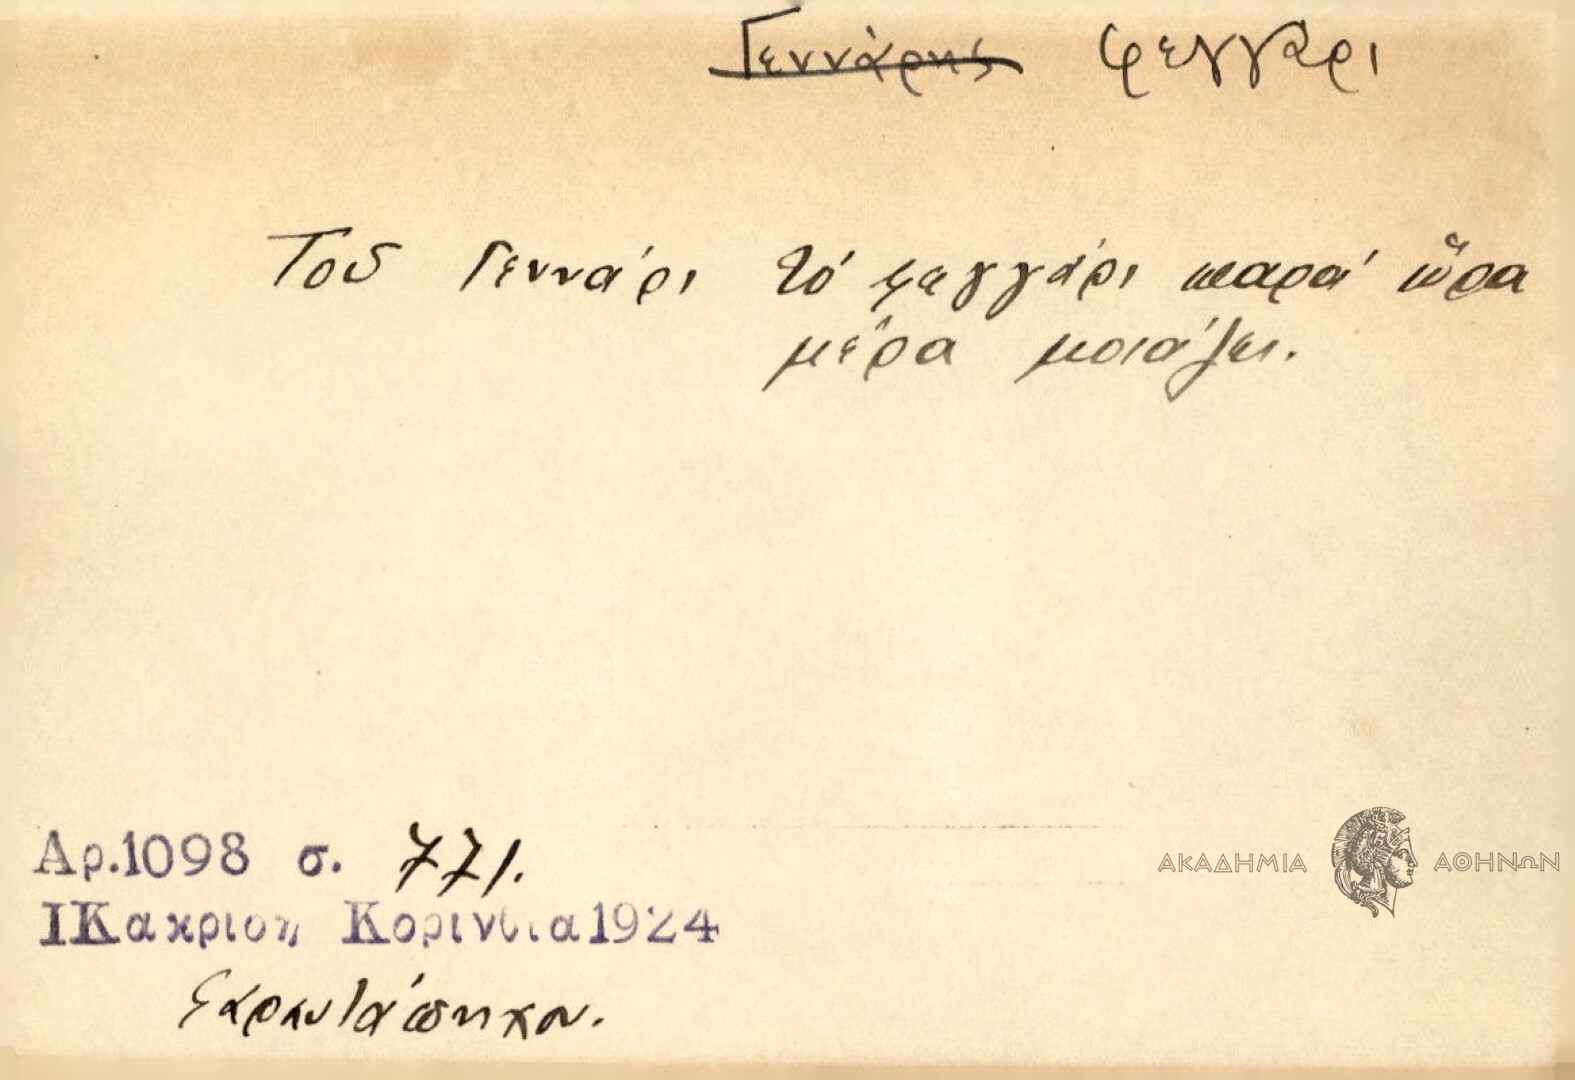 Γεννάρης φεγγάρι
Τοῦ Γεννάρι τό φεγγάρι παρά ὥρα
μέρα μοιάζει.
Αρ.1098 σ. 771.
ΙΚακριση Κορινθια1924
Σαρανταπηχου.
ΑΚΑΔΗΜΙΑ ΑΘΗΝΩΝ